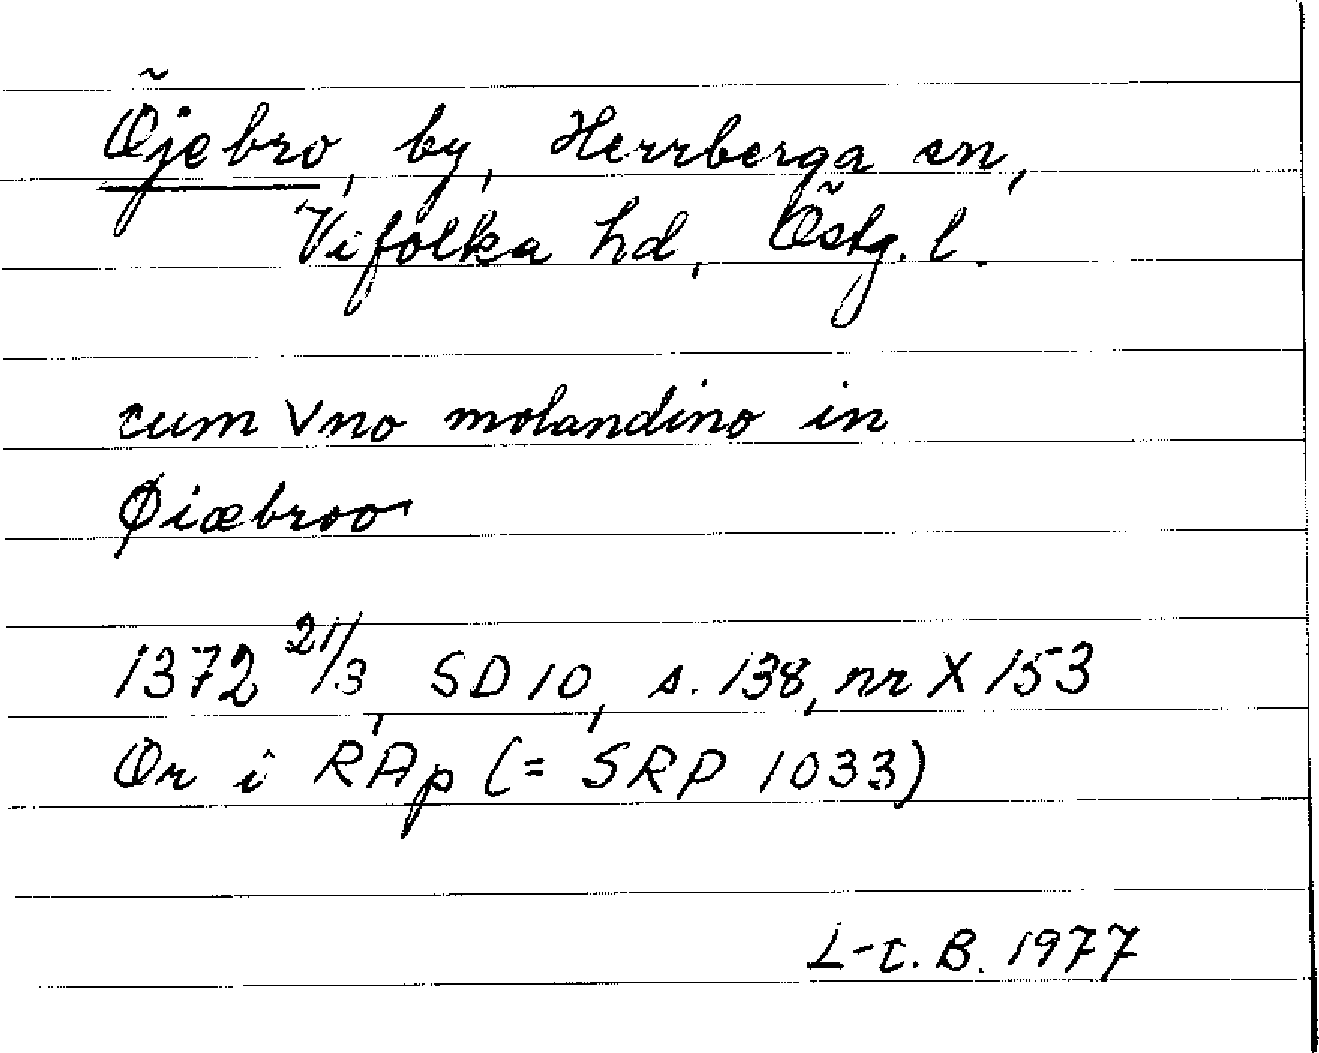 Öjebro, by, Herrberga sn,
Vifolka hd, Östg. l.
cum vno molandino in
Øiæbroo
1372 21/3, SD 10, s. 138, nr X 153
Or i RAp (= SRP 1033)
L-C. B. 1977